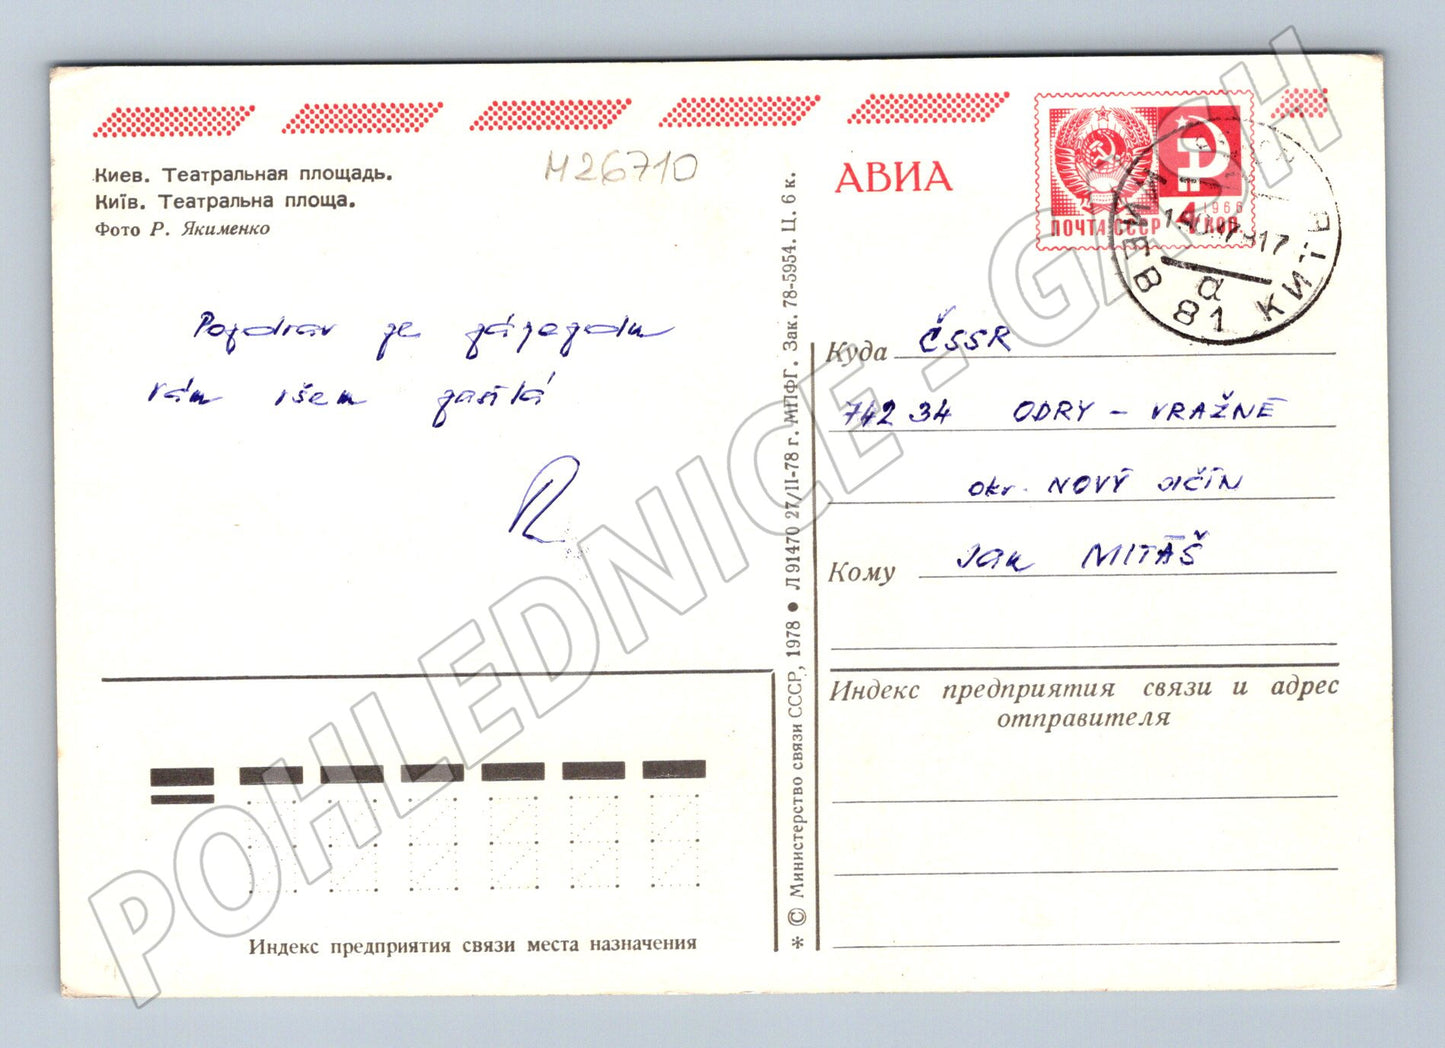 Киев. Театральная площадь.
Київ. Театральна площа.
Фото Р. Якименко
M26710
АВИА
ПОЧТА СССР 4 КОП
1966
КИЕВ 81
а
Pozdrav ze
vám všem
R
Куда ČSSR
742 34 ODRY – VRAŽNÉ
okr. NOVÝ JIČÍN
Кому Jan MITÁŠ
Индекс предприятия связи и адрес
отправителя
Индекс предприятия связи места назначения
* © Министерство связи СССР, 1978 • Л 91470 27/II-78 г. МПФГ. Зак. 78-5954. Ц. 6 к.
POHLEDNICE - GASH